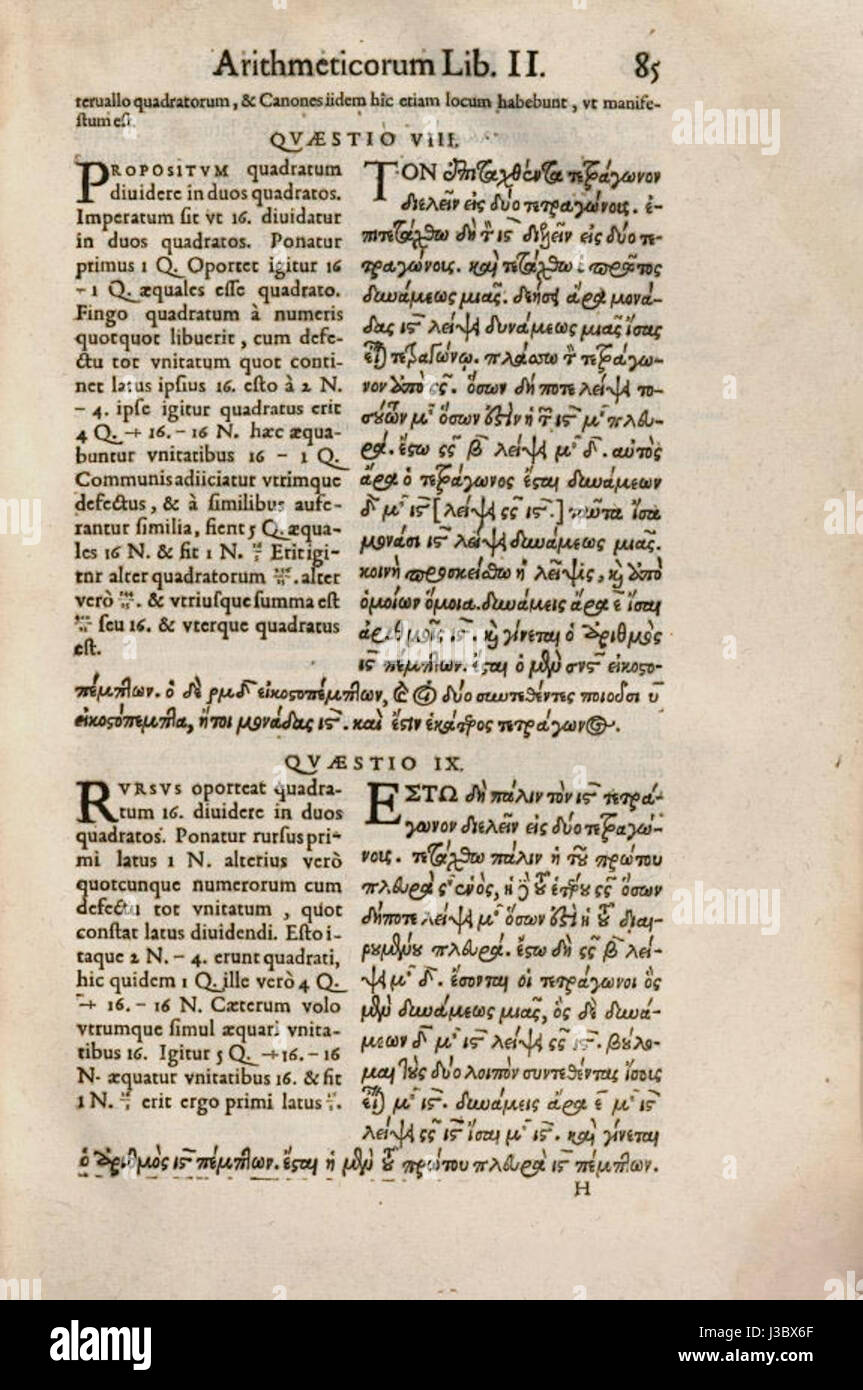 Arithmeticorum Lib. II. 85
teruallo quadratorum, & Canones iidem hîc etiam locum habebunt, vt manife-
stum est.
QVÆSTIO VIII.
PROPOSITVM quadratum
diuidere in duos quadratos.
Imperatum sit vt 16. diuidatur
in duos quadratos. Ponatur
primus 1 Q. Oportet igitur 16
– 1 Q. æquales esse quadrato.
Fingo quadratum à numeris
quotquot libuerit, cum defe-
ctu tot vnitatum quot conti-
net latus ipsius 16. esto à 2 N.
– 4. ipse igitur quadratus erit
4 Q. + 16. – 16 N. hæc æqua-
buntur vnitatibus 16 – 1 Q.
Communis adiiciatur vtrimque
defectus, & à similibus aufe-
rantur similia, fient 5 Q. æqua-
les 16 N. & fit 1 N. Erit igi-
tur alter quadratorum .alter
verò . & vtriusque summa est
seu 16. & vterque quadratus
est.
ΤΟΝ ἐπιταχθέντα τετράγωνον
διελεῖν εἰς δύο τετραγώνους. ἐ-
πιτετάχθω δὴ τὸν ις̅ διελεῖν εἰς δύο τε-
τραγώνους. καὶ τετάχθω ὁ πρῶτος
δυνάμεως μιᾶς. δεήσει ἄρα μονά-
δας ις̅ λείψει δυνάμεως μιᾶς ἴσας
εἶναι τετραγώνῳ. πλάσσω τὸν τετράγω-
νον ἀπὸ ςς̅. ὅσων δή ποτε λείψει το-
σούτων μο ὅσων ἐστὶν ἡ τῶν ις̅ μο πλευ-
ρά. ἔστω ςς̅ β̅ λείψει μο δ̅. αὐτὸς
ἄρα ὁ τετράγωνος ἔσται δυνάμεων
δ̅ μο ις̅ [λείψει ςς̅ ις̅.] ταῦτα ἴσα
μονάσι ις̅ λείψει δυνάμεως μιᾶς.
κοινὴ προσκείσθω ἡ λεῖψις, καὶ ἀπὸ
ὁμοίων ὅμοια. δυνάμεις ἄρα ε̅ ἴσαι
ἀριθμοῖς ις̅. καὶ γίνεται ὁ ἀριθμὸς
ις̅ πέμπτων. ἔσται ὁ μὲν σνς̅ εἰκοσο-
πέμπτων. ὁ δὲ ρμδ̅ εἰκοσοπέμπτων, καὶ οἱ δύο συντεθέντες ποιοῦσι υ̅
εἰκοσόπεμπτα, ἤτοι μονάδας ις̅. καὶ ἔστιν ἑκάτερος τετράγωνος.
QVÆSTIO IX.
RVRSVS oporteat quadra-
tum 16. diuidere in duos
quadratos. Ponatur rursus pri-
mi latus 1 N. alterius verò
quotcunque numerorum cum
defectu tot vnitatum, quot
constat latus diuidendi. Esto i-
taque 2 N. – 4. erunt quadrati,
hic quidem 1 Q. ille verò 4 Q.
+ 16. – 16 N. Cæterum volo
vtrumque simul æquari vnita-
tibus 16. Igitur 5 Q. + 16. – 16
N. æquatur vnitatibus 16. & fit
1 N. erit ergo primi latus .
ΕΣΤΩ δὴ πάλιν τὸν ις̅ τετρά-
γωνον διελεῖν εἰς δύο τετραγώ-
νους. τετάχθω πάλιν ἡ τοῦ πρώτου
πλευρὰ ς ἑνὸς, ἡ δὲ τοῦ ἑτέρου ςς̅ ὅσων
δήποτε λείψει μο ὅσων ἐστὶν ἡ τοῦ διαι-
ρουμένου πλευρά. ἔστω δὴ ςς̅ β̅ λεί-
ψει μο δ̅. ἔσονται οἱ τετράγωνοι ὃς
μὲν δυνάμεως μιᾶς, ὃς δὲ δυνά-
μεων δ̅ μο ις̅ λείψει ςς̅ ις̅. βούλο-
μαι τοὺς δύο λοιπὸν συντεθέντας ἴσους
εἶναι μο ις̅. δυνάμεις ἄρα ε̅ μο ις̅
λείψει ςς̅ ις̅ ἴσαι μο ις̅. καὶ γίνεται
ὁ ἀριθμὸς ις̅ πέμπτων. ἔσται ἡ μὲν τοῦ πρώτου πλευρὰ ις̅ πέμπτων.
H
alamy
Image ID: J3BX6F
www.alamy.com